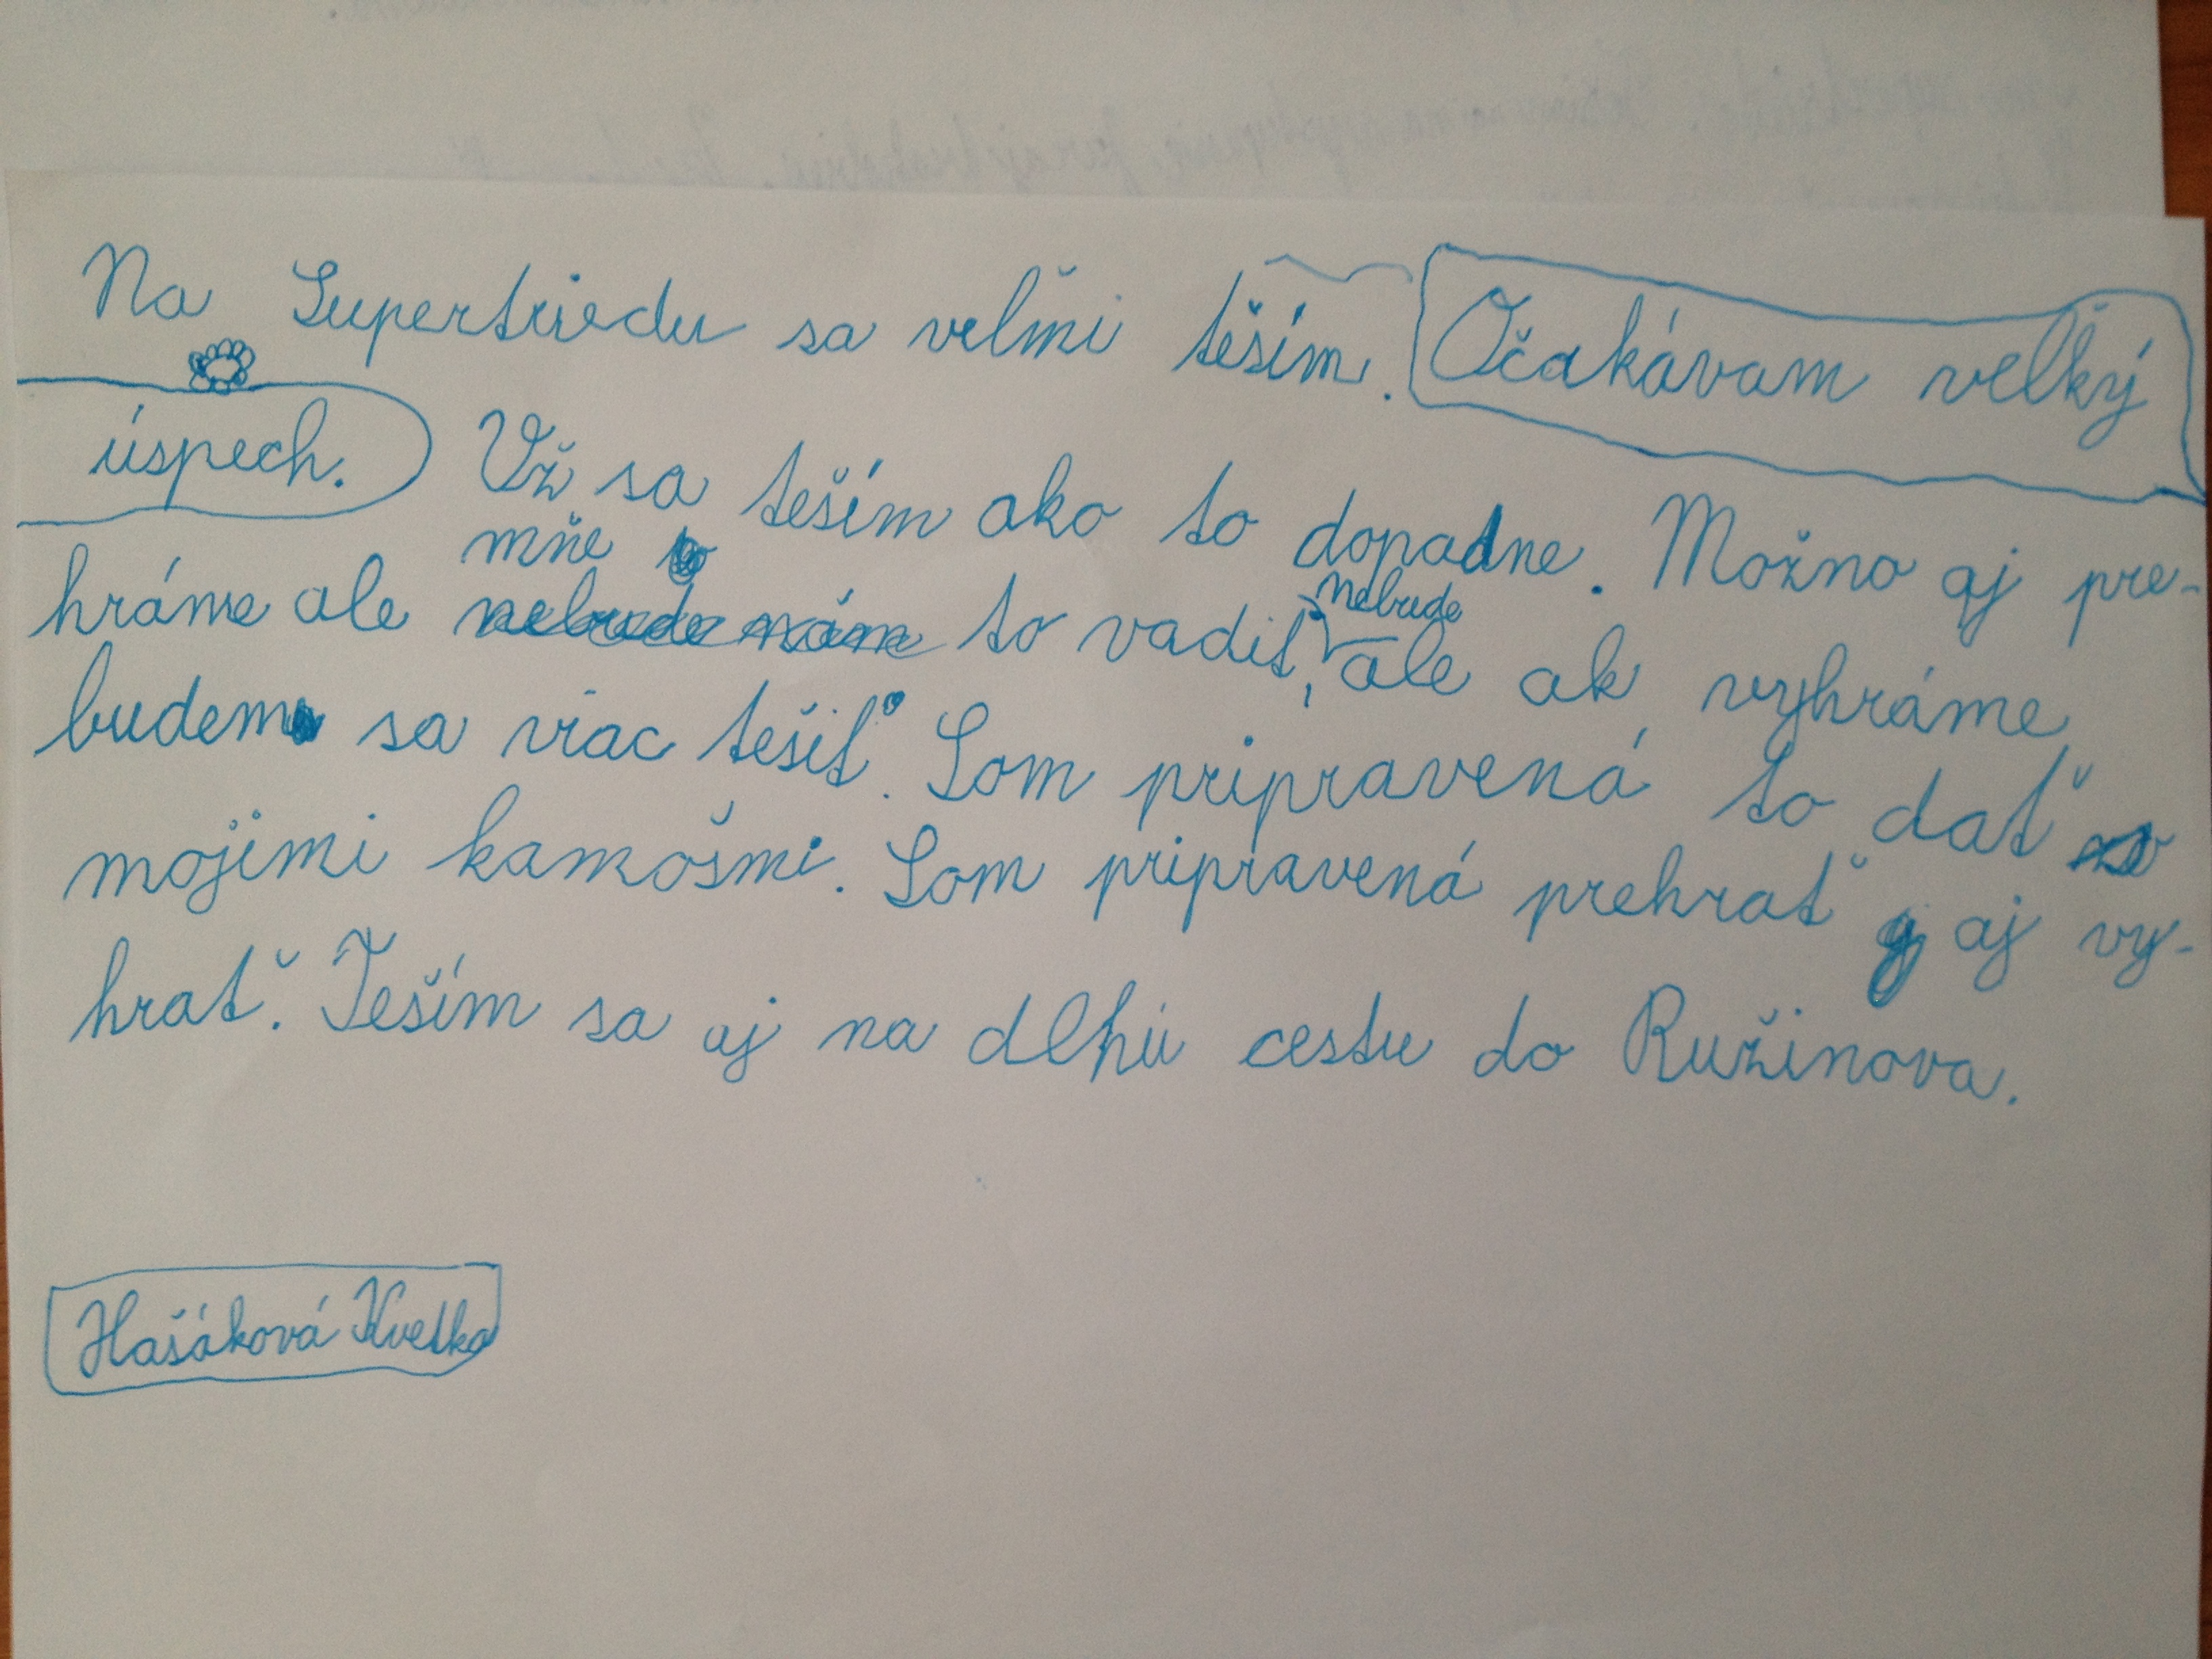 Na Supertriedu sa veľmi teším. Očakávam veľký
úspech. Už sa teším ako to dopadne. Možno aj pre-
mňe
hráme ale nebude nám to vadiť, nebude ale ak vyhráme
budem sa viac tešiť. Som pripravená to dať s
mojimi kamošmi. Som pripravená prehrať aj vy-
hrať. Teším sa aj na dlhú cestu do Ružinova.
Hašáková Kvetka